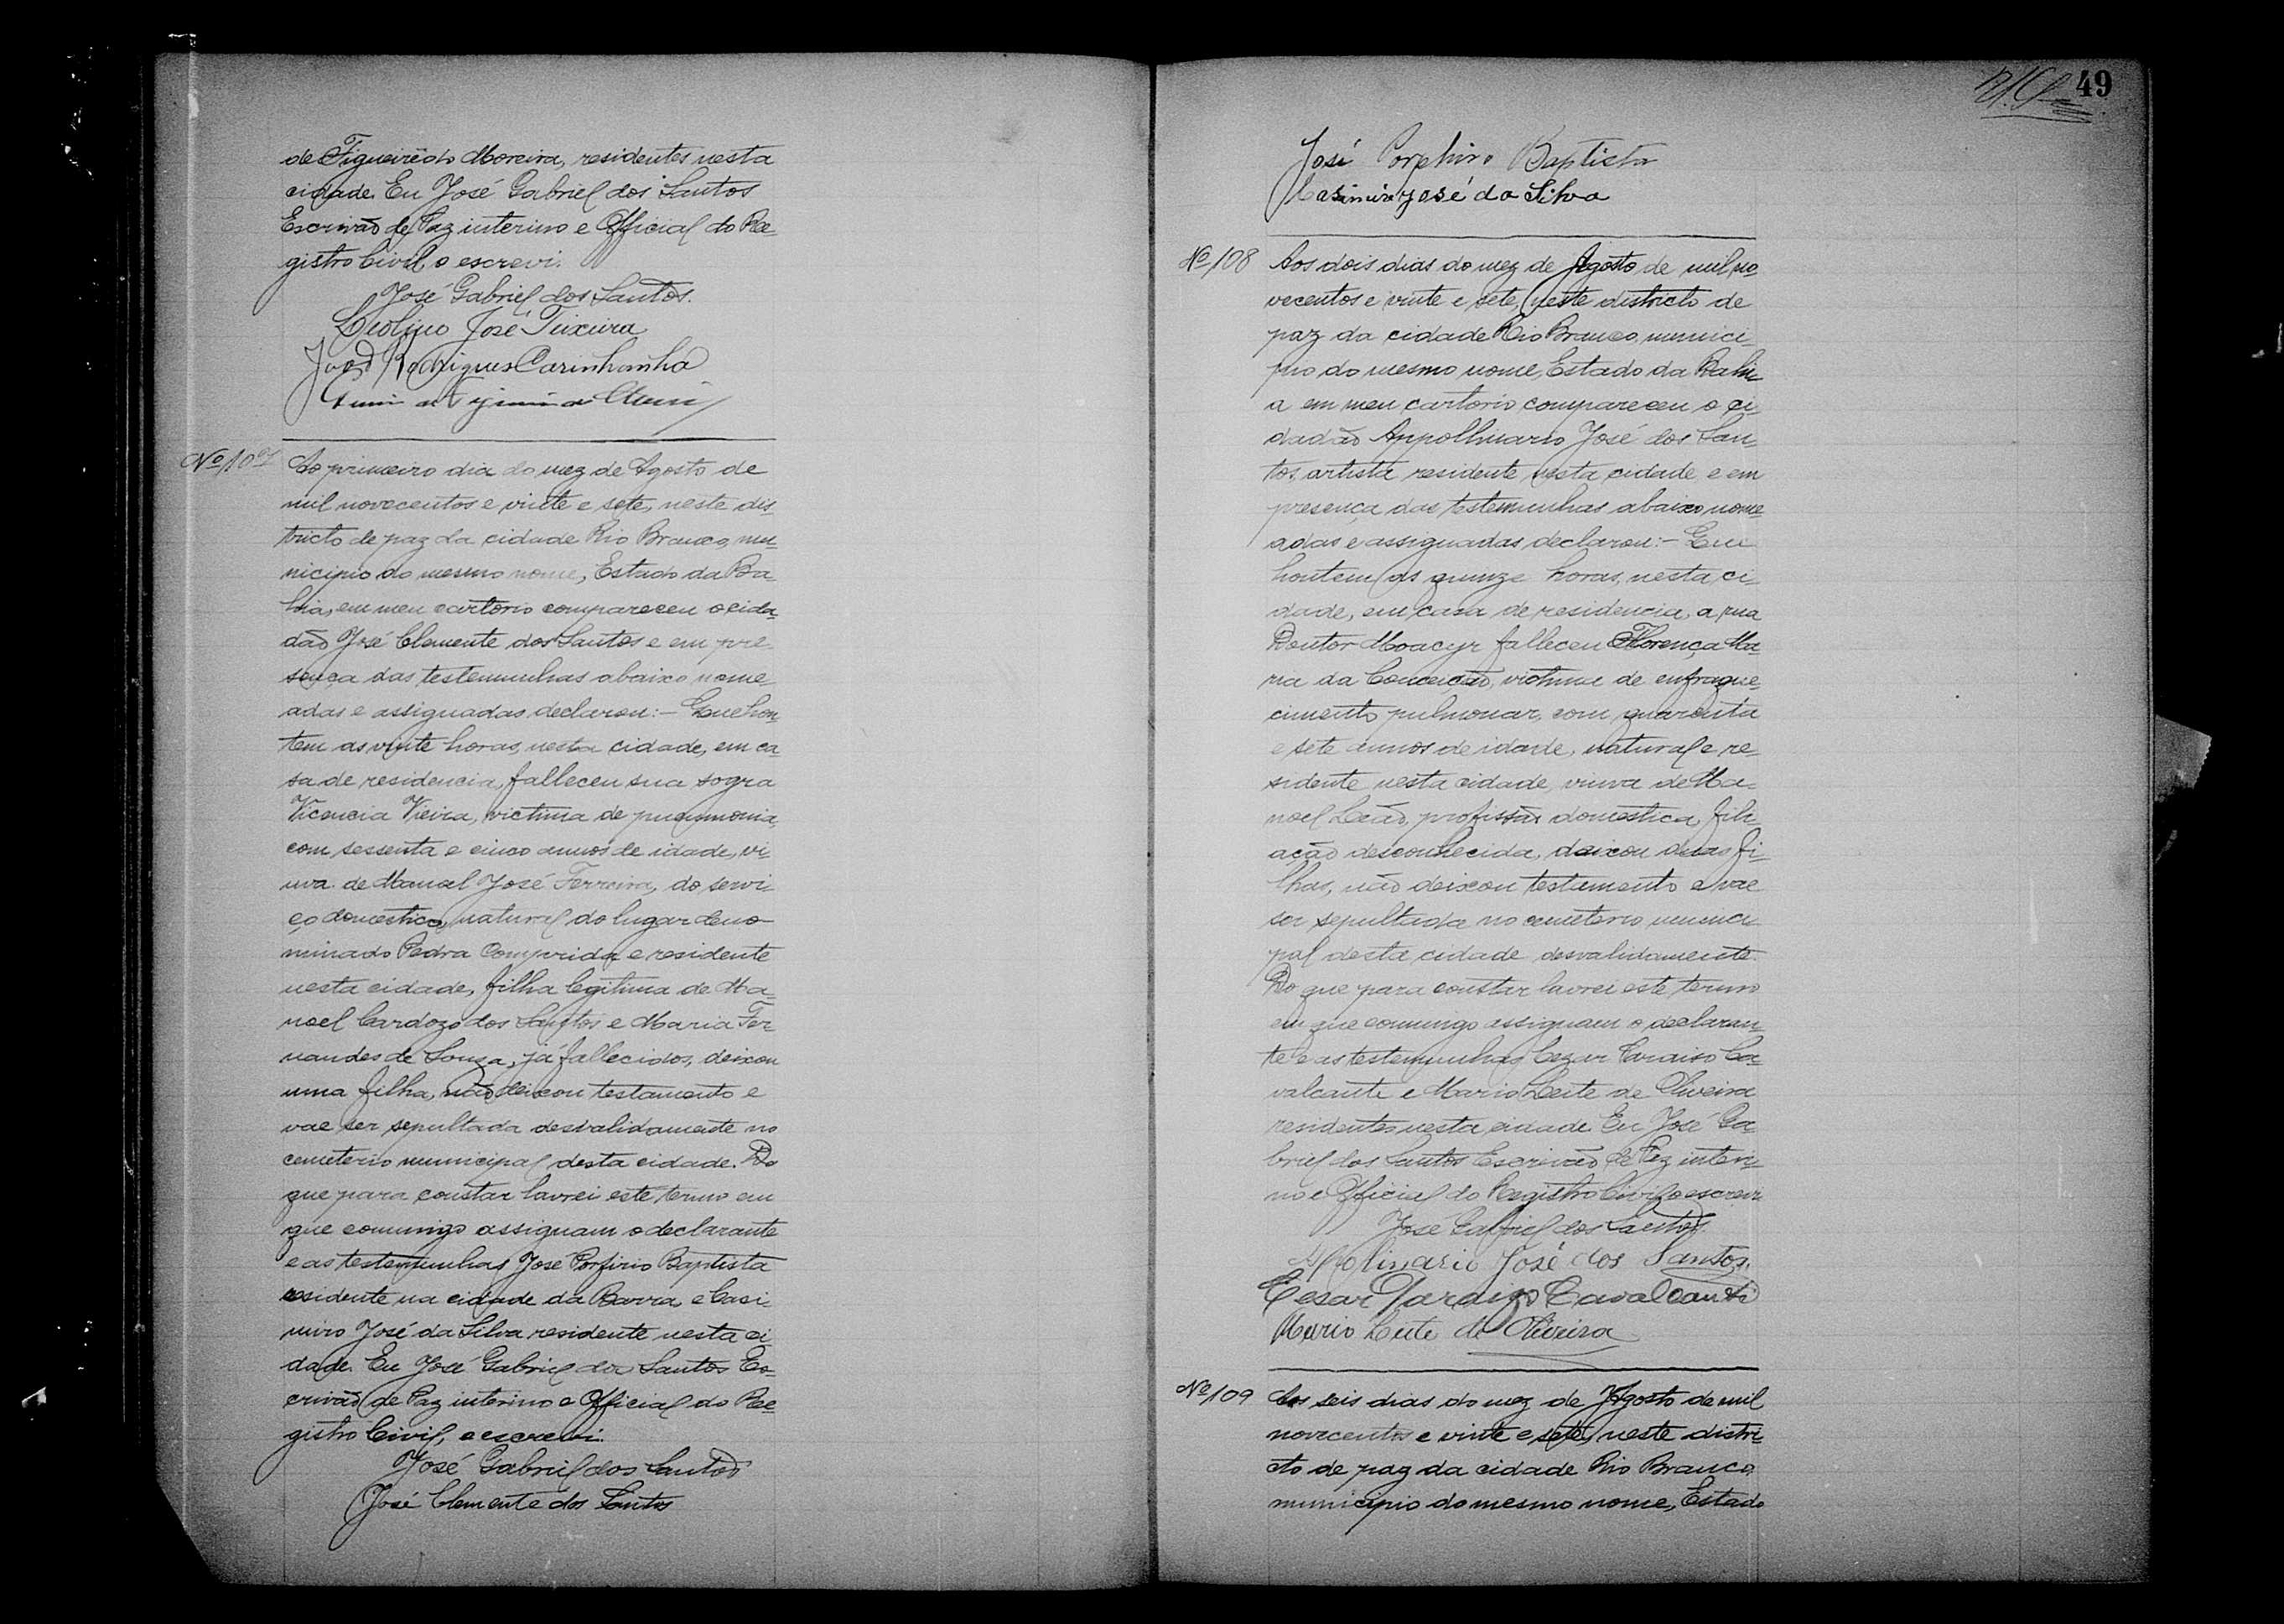 de Figueirêdo Moreira, residentes nesta
cidade. Eu José Gabriel dos Santos
Escrivão de Paz interino e Official do Re-
gistro Civil, o escrevi.
José Gabriel dos Santos.
José Teixeira
João Rodrigues Carinhanha
Nº 107
Ao primeiro dia do mez de Agosto de
mil novecentos e vinte e sete, neste dis-
tricto de paz da cidade Rio Branco, mu-
nicipio do mesmo nome, Estado da Ba-
hia, em meu cartorio compareceu o cida-
dão José Clemente dos Santos e em pre-
sença das testemunhas abaixo nome-
adas e assignadas declarou:- Que hon-
tem as vinte horas, nesta cidade, em ca-
sa de residencia, falleceu sua sogra
Vicencia Vieira, victima de pneumonia,
com sessenta e cinco annos de idade, vi-
uva de Manoel José Ferreira, do servi-
ço domestico, natural do lugar deno-
minado Pedra Comprida e residente
nesta cidade, filha legitima de Ma-
noel Cardozo dos Santos e Maria Fer-
nandes de Souza, já fallecidos, deixou
uma filha, não deixou testamento e
vae ser sepultada desvalidamente no
cemeterio municipal desta cidade. Do
que para constar lavrei este termo em
que commigo assignam o declarante
e as testemunhas José Porfirio Baptista
residente na cidade da Barra e Casi-
miro José da Silva residente nesta ci-
dade. Eu José Gabriel dos Santos Es-
crivão de Paz interino e Official do Re-
gistro Civil, o escrevi.
José Gabriel dos Santos
José Clemente dos Santos
49
José Porphirio Baptista
Casimiro José da Silva
Nº 108
Aos dois dias do mez de Agosto de mil no-
vecentos e vinte e sete, neste districto de
paz da cidade Rio Branco, munici-
pio do mesmo nome, Estado da Bahi-
a em meu cartorio compareceu o ci-
dadão Appollinario José dos San-
tos, artista residente nesta cidade e em
presença das testemunhas abaixo nome-
adas e assignadas declarou:- Que
hontem as quinze horas, nesta ci-
dade, em casa de residencia, a rua
Doutor Moacyr falleceu Florença Ma-
ria da Conceição, victima de enfraque-
cimento pulmonar, com quarenta
e sete annos de idade, natural e re-
sidente nesta cidade, viuva de Ma-
noel Leão, profissão domestica, fili-
ação desconhecida, deixou duas fi-
lhas, não deixou testamento e vae
ser sepultada no cemeterio munici-
pal desta cidade desvalidamente.
Do que para constar lavrei este termo
em que commigo assignam o declaran-
te e as testemunhas Cezar Paraiso Ca-
valcante e Mario Leite de Oliveira
residentes nesta cidade. Eu José Ga-
briel dos Santos Escrivão de Paz interi-
no e Official do Registro Civil, o escrevi
José Gabriel dos Santos.
Apolinario José dos Santos.
Cesar Paraizo Cavalcanti
Mario Leite de Oliveira
Nº 109
Aos seis dias do mez de Agosto de mil
novecentos e vinte e sete, neste distri-
cto de paz da cidade Rio Branco
municipio do mesmo nome, Estado